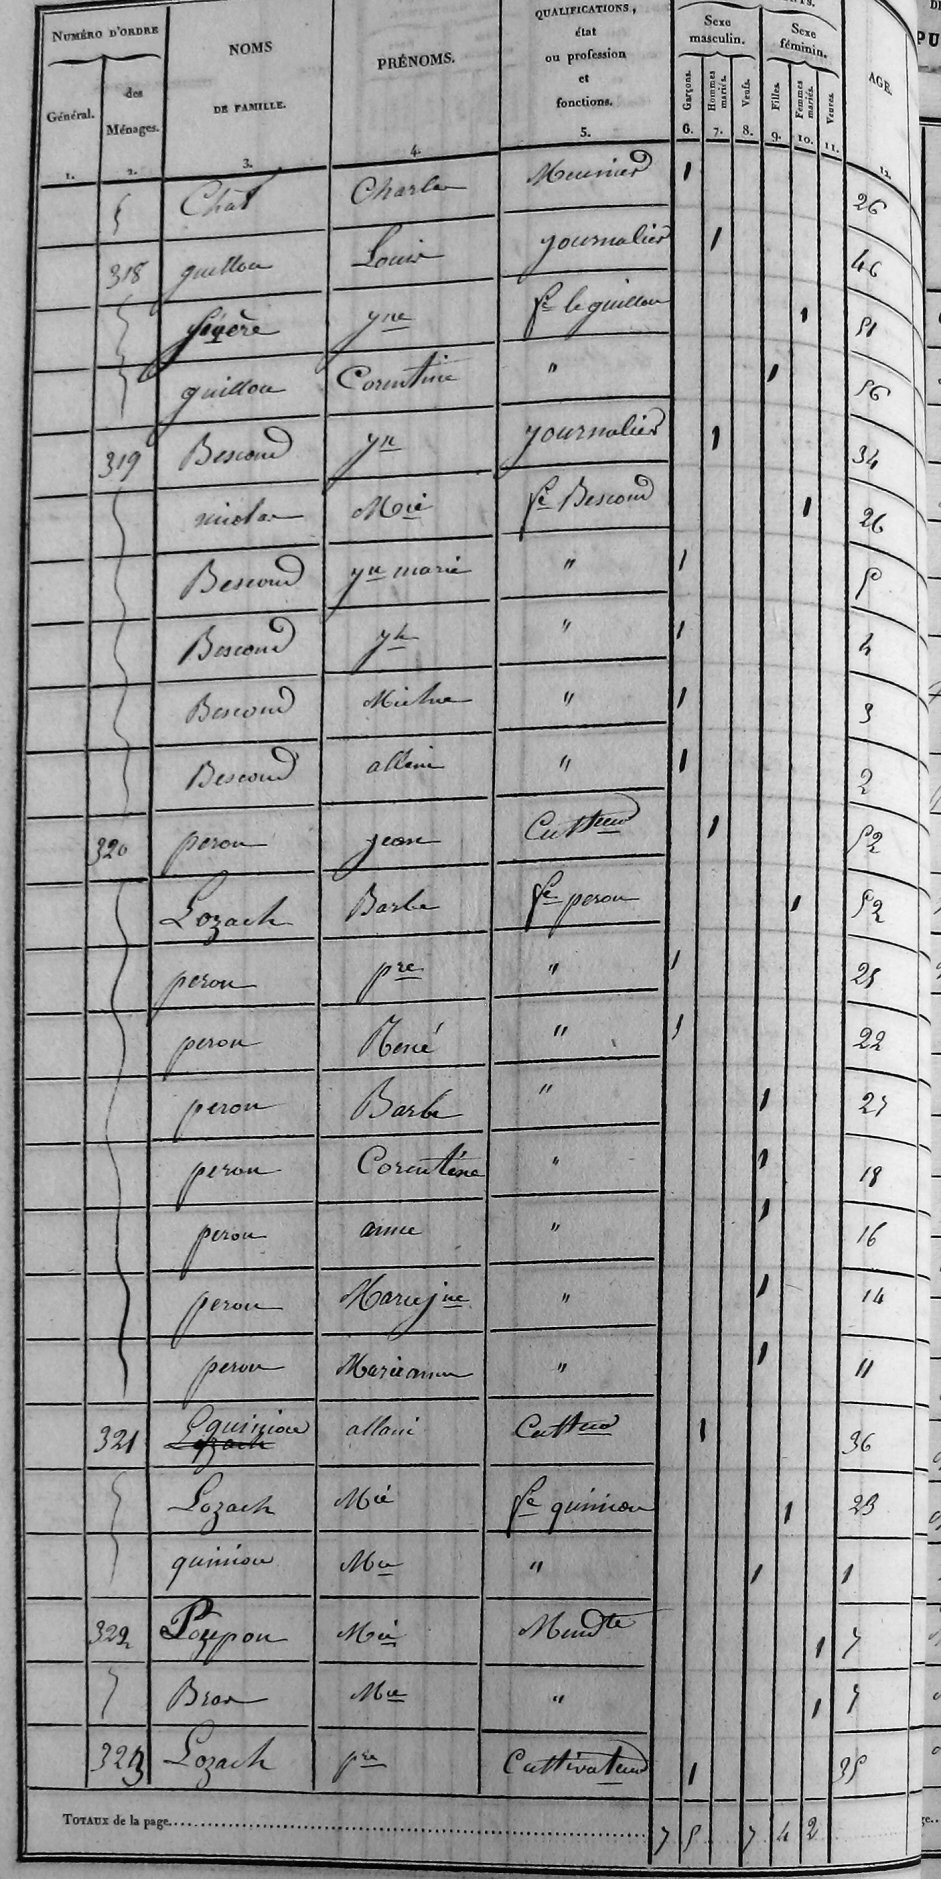 NUMÉRO D'ORDRE
Général. des Ménages.
NOMS DE FAMILLE.
PRÉNOMS.
QUALIFICATIONS, état ou profession et fonctions.
Sexe masculin. Sexe féminin.
Garçons. Hommes mariés. Veufs. Filles. Femmes mariées. Veuves.
AGE.
1. 2. 3. 4. 5. 6. 7. 8. 9. 10. 11. 12.
Chat Charles Meunier 1 26
318 guillou Louis journalier 1 46
yne fe le guillou 1 51
guillou Corentine " 1 56
319 Bescond yn journalier 1 34
nicolas Mie fe Bescond 1 26
Bescond yn marie " 1 5
Bescond yh " 1 4
Bescond " 1 3
Bescond allain " 1 2
320 peron jean Cultteur 1 52
Lozach Barbe fe peron 1 52
peron pre " 1 25
peron René " 1 22
peron Barbe " 1 27
peron Corentine " 1 18
peron anne " 1 16
peron Marie jne " 1 14
peron Marie anne " 1 11
321 quiniou allain Cultteur 1 36
Lozach Mie fe quiniou 1 23
quiniou Mie " 1 1
322 Mie Mendte 1 7
Bras Mie " 1 7
323 Lozach pre Cultivateur 1 35
TOTAUX de la page 7 5 7 4 2